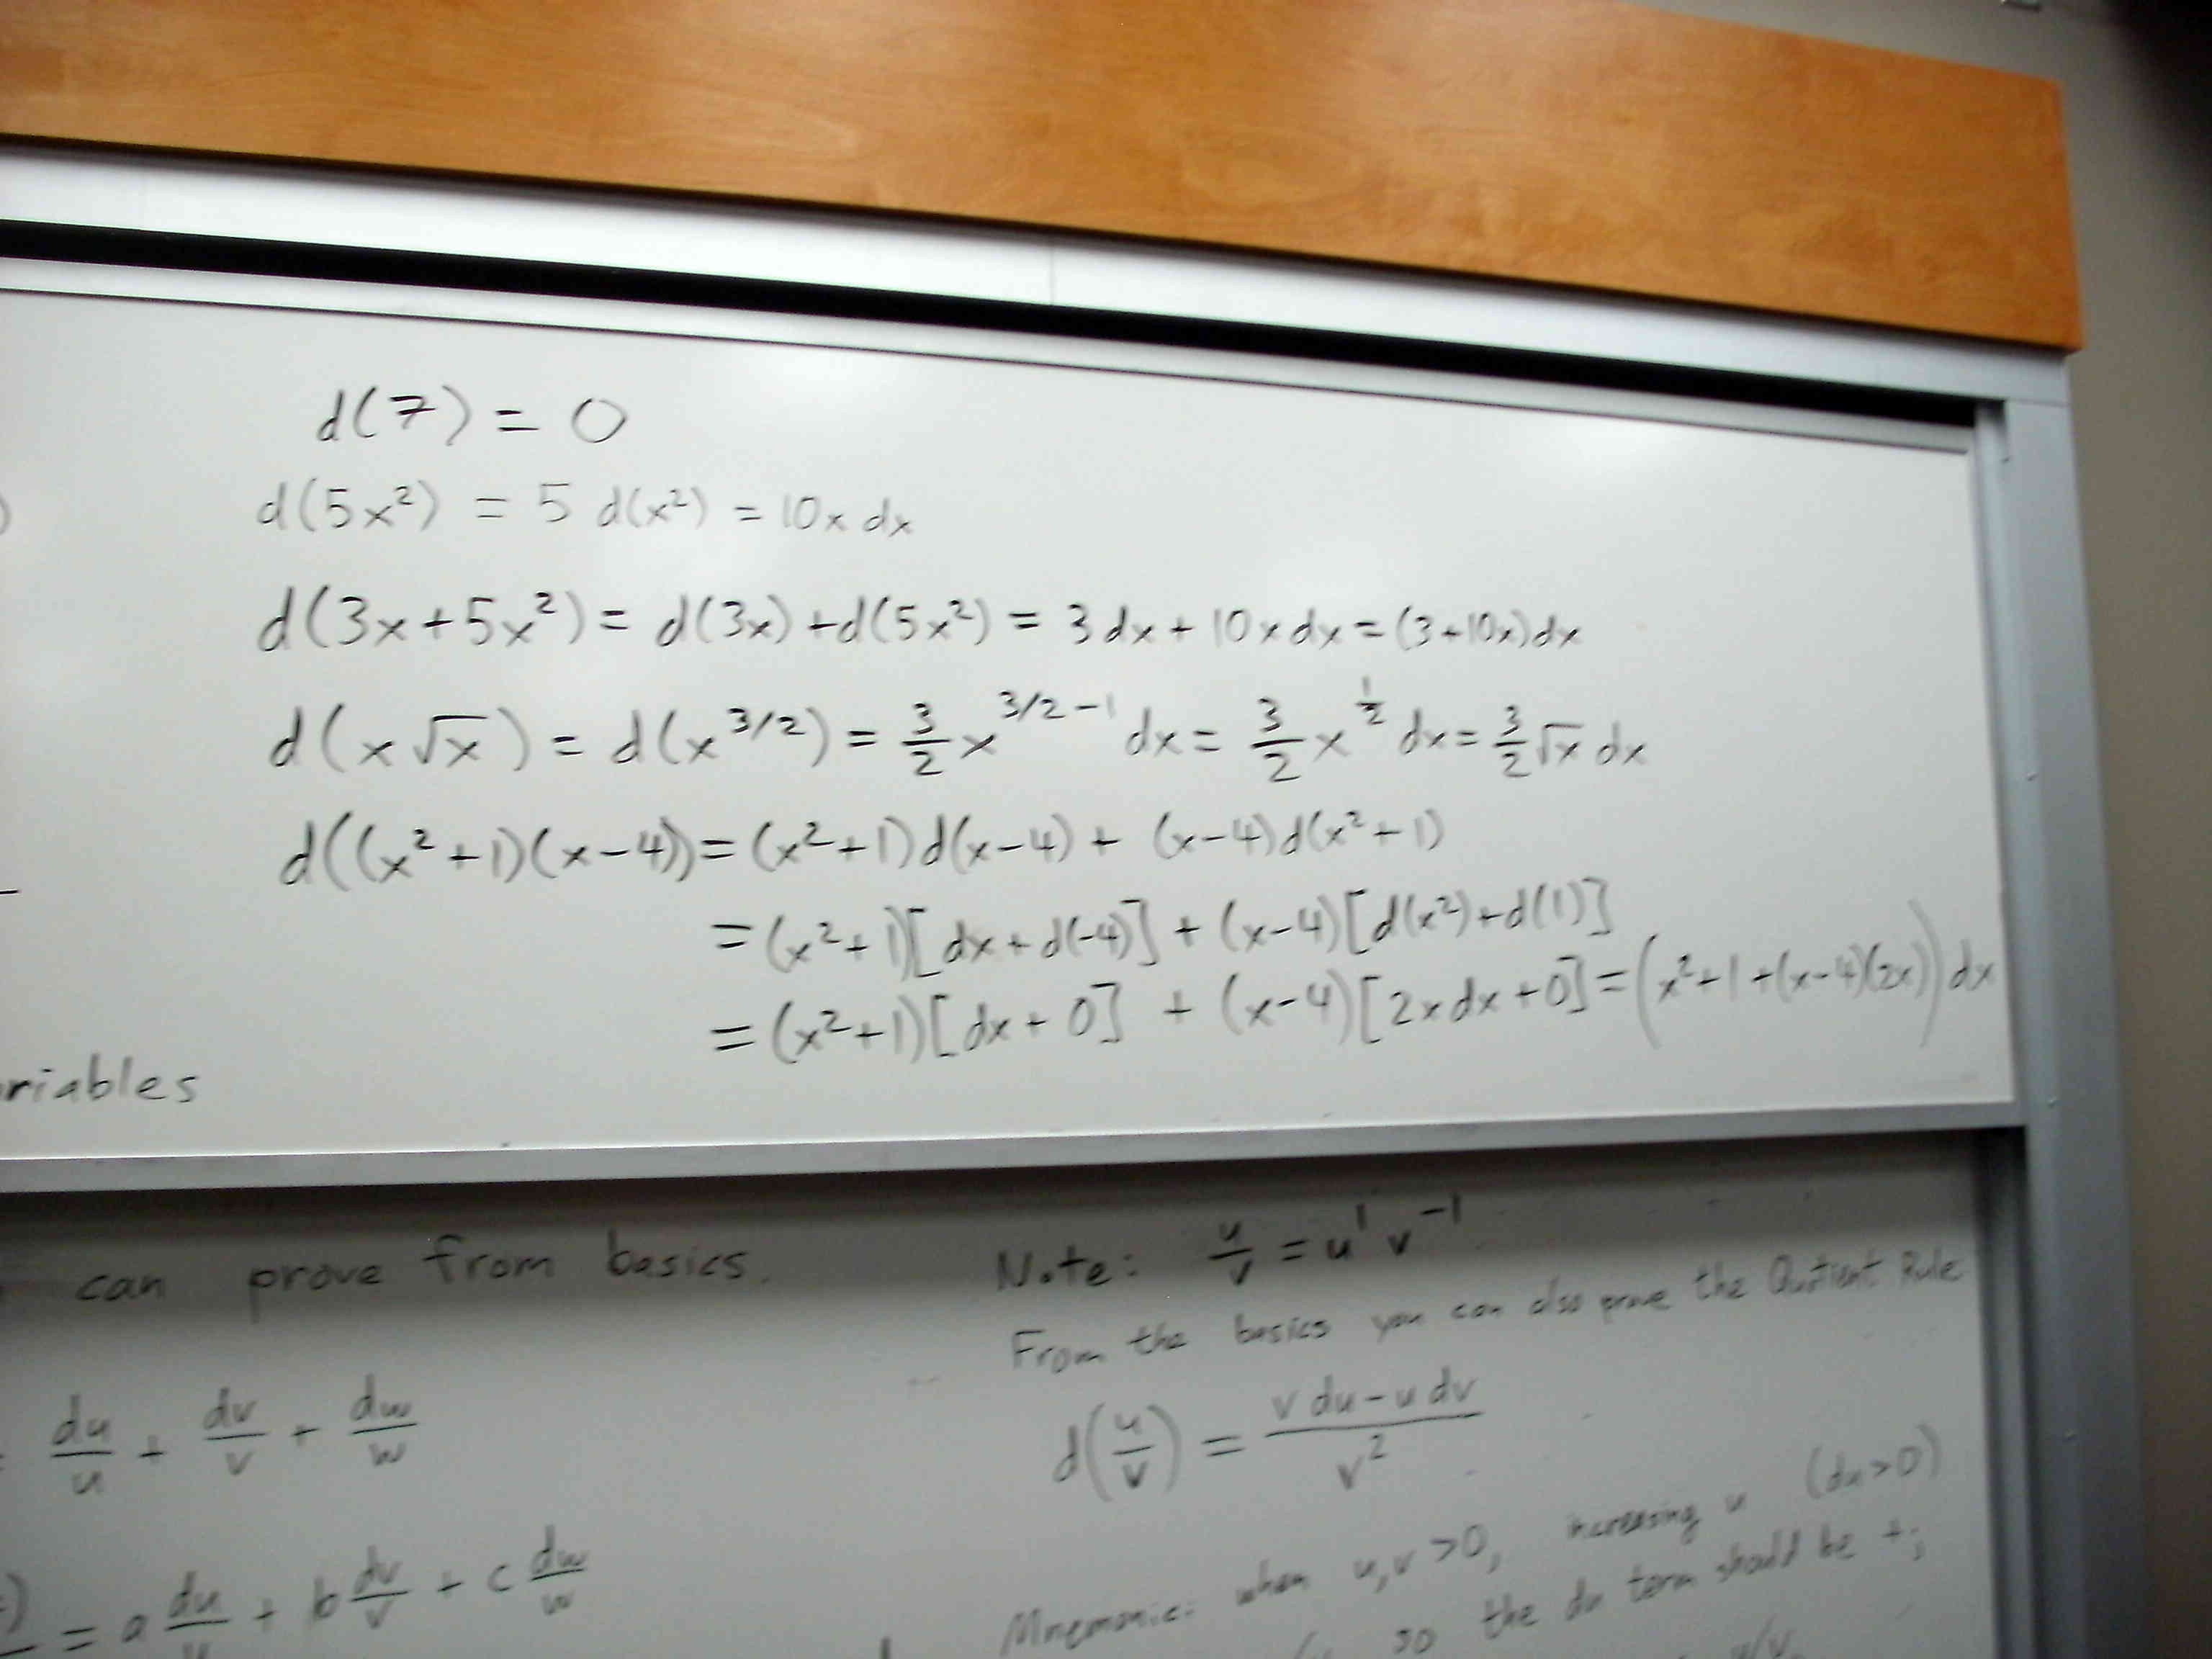 )
d(7) = 0
d(5x²) = 5 d(x²) = 10x dx
d(3x+5x²) = d(3x)+d(5x²) = 3dx + 10x dx = (3+10x)dx
d(x√x) = d(x^3/2) = 3/2 x^3/2-1 dx = 3/2 x^1/2 dx = 3/2 √x dx
d((x²+1)(x-4)) = (x²+1)d(x-4) + (x-4)d(x²+1)
= (x²+1)[dx+d(-4)] + (x-4)[d(x²)+d(1)]
= (x²+1)[dx+0] + (x-4)[2x dx+0] = (x²+1+(x-4)(2x))dx
riables
can prove from basics.
du/u + dv/v + dw/w
) = a du/u + b dv/v + c dw/w
Note: u/v = u¹ v⁻¹
From the basics you can also prove the Quotient Rule
d(u/v) = (v du - u dv)/v²
Mnemonic: when u,v >0, increasing u (du>0)
so the du term should be +;
u/v.